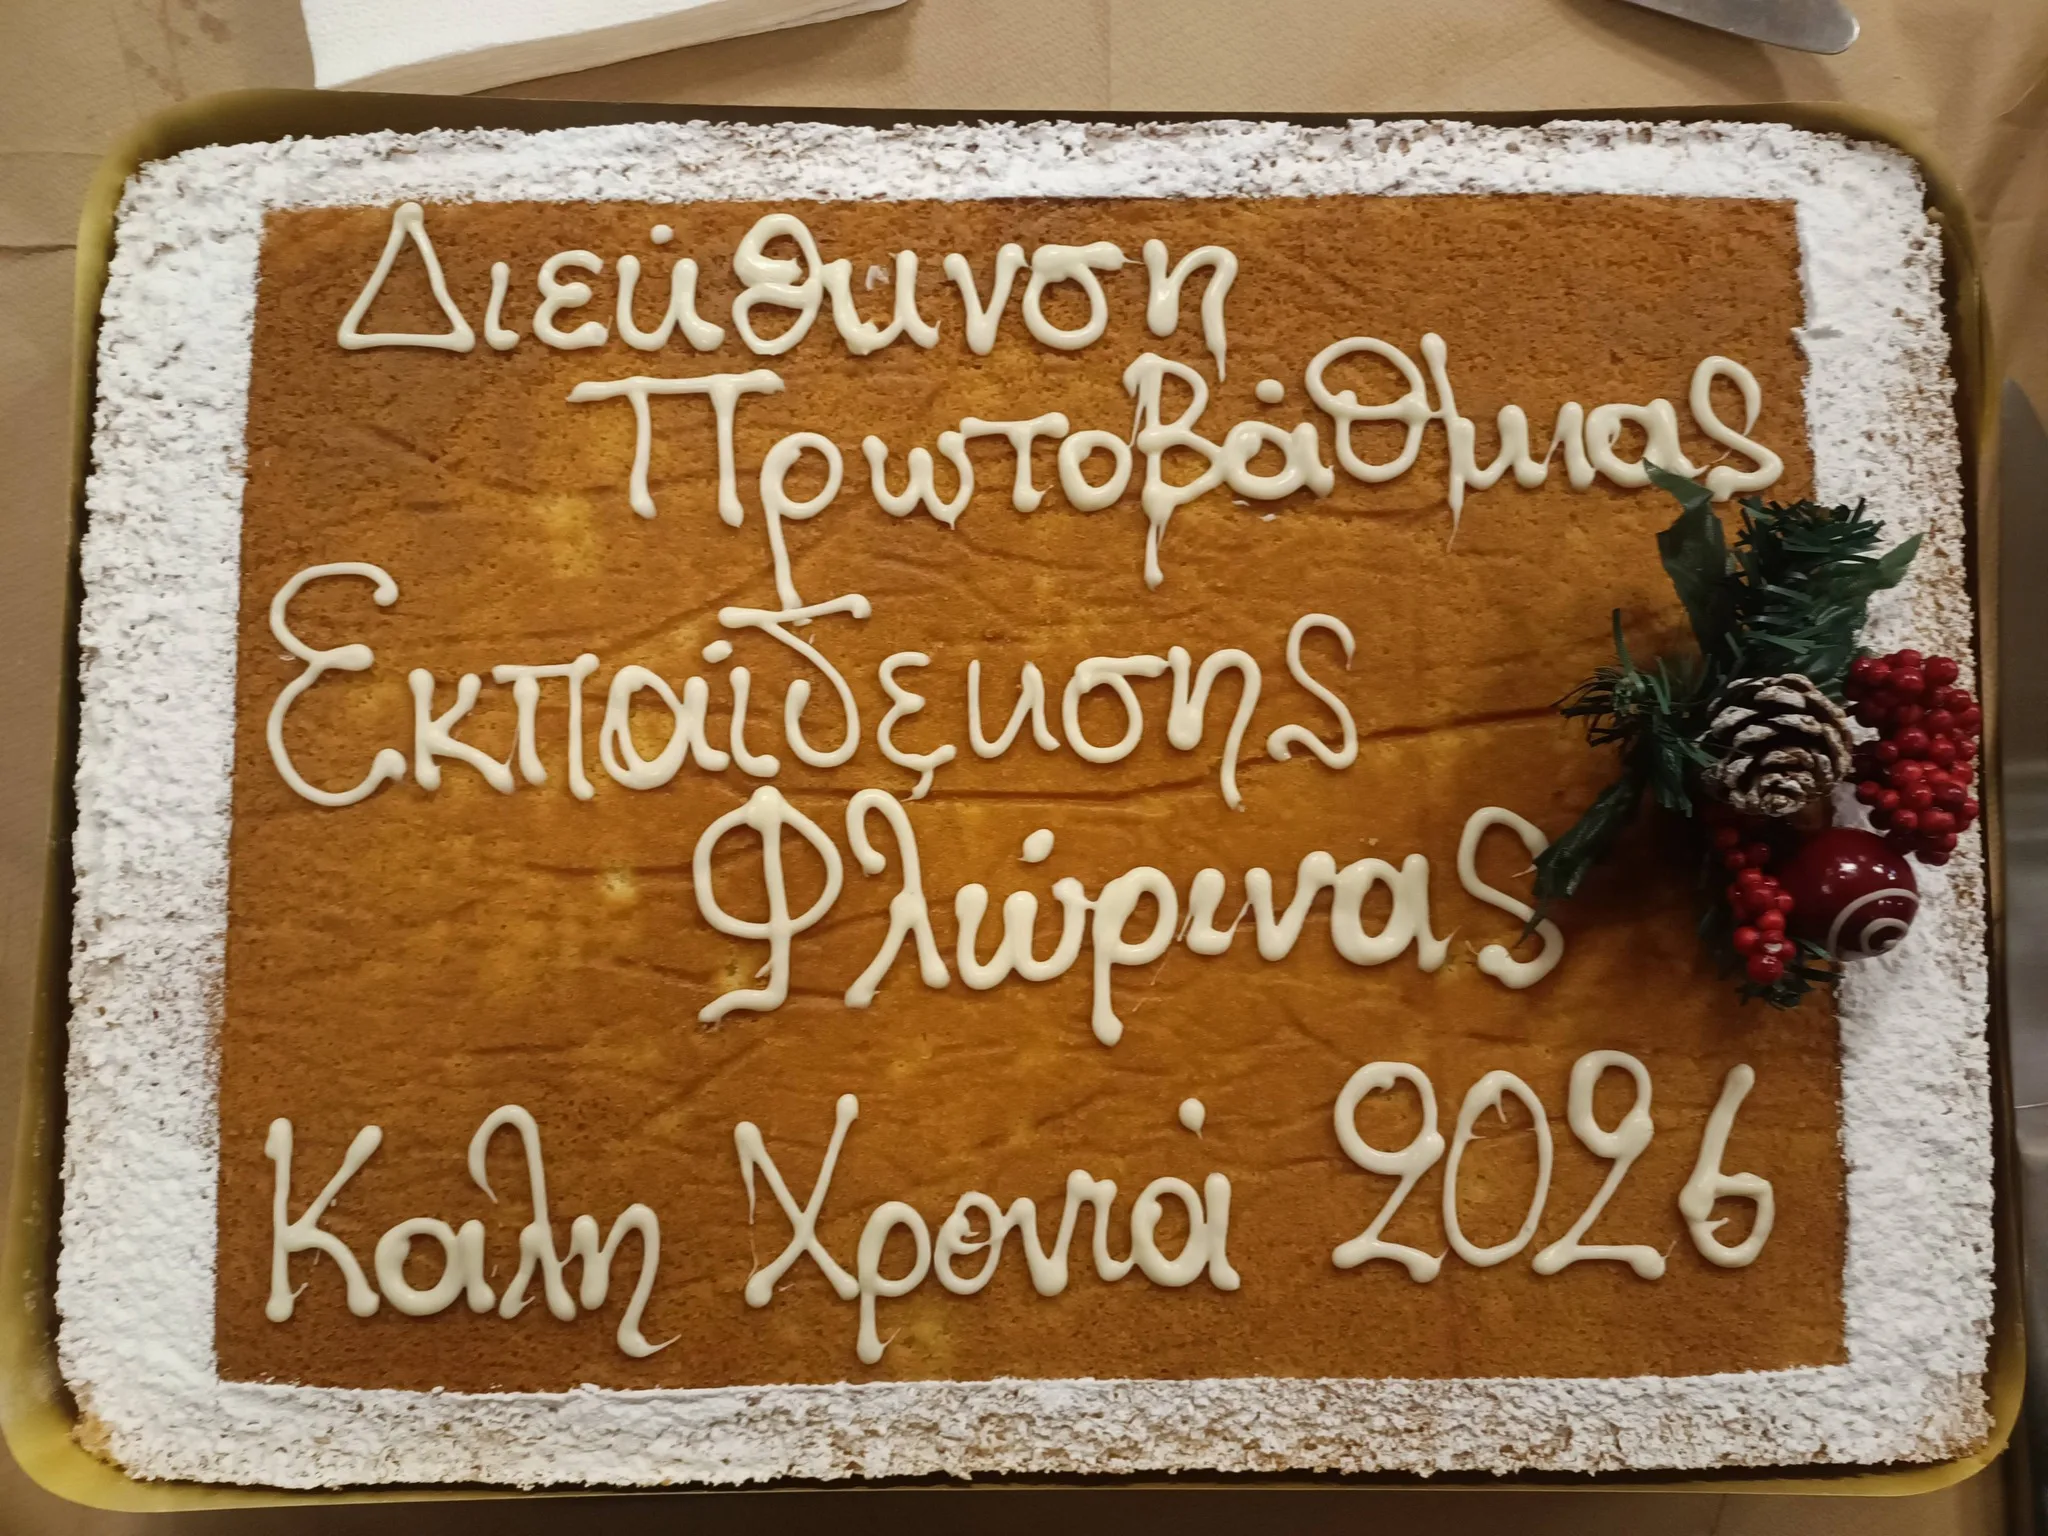 Διεύθυνση
Πρωτοβάθμιας
Εκπαίδευσης
Φλώρινας
Καλη Χρονιά 2026